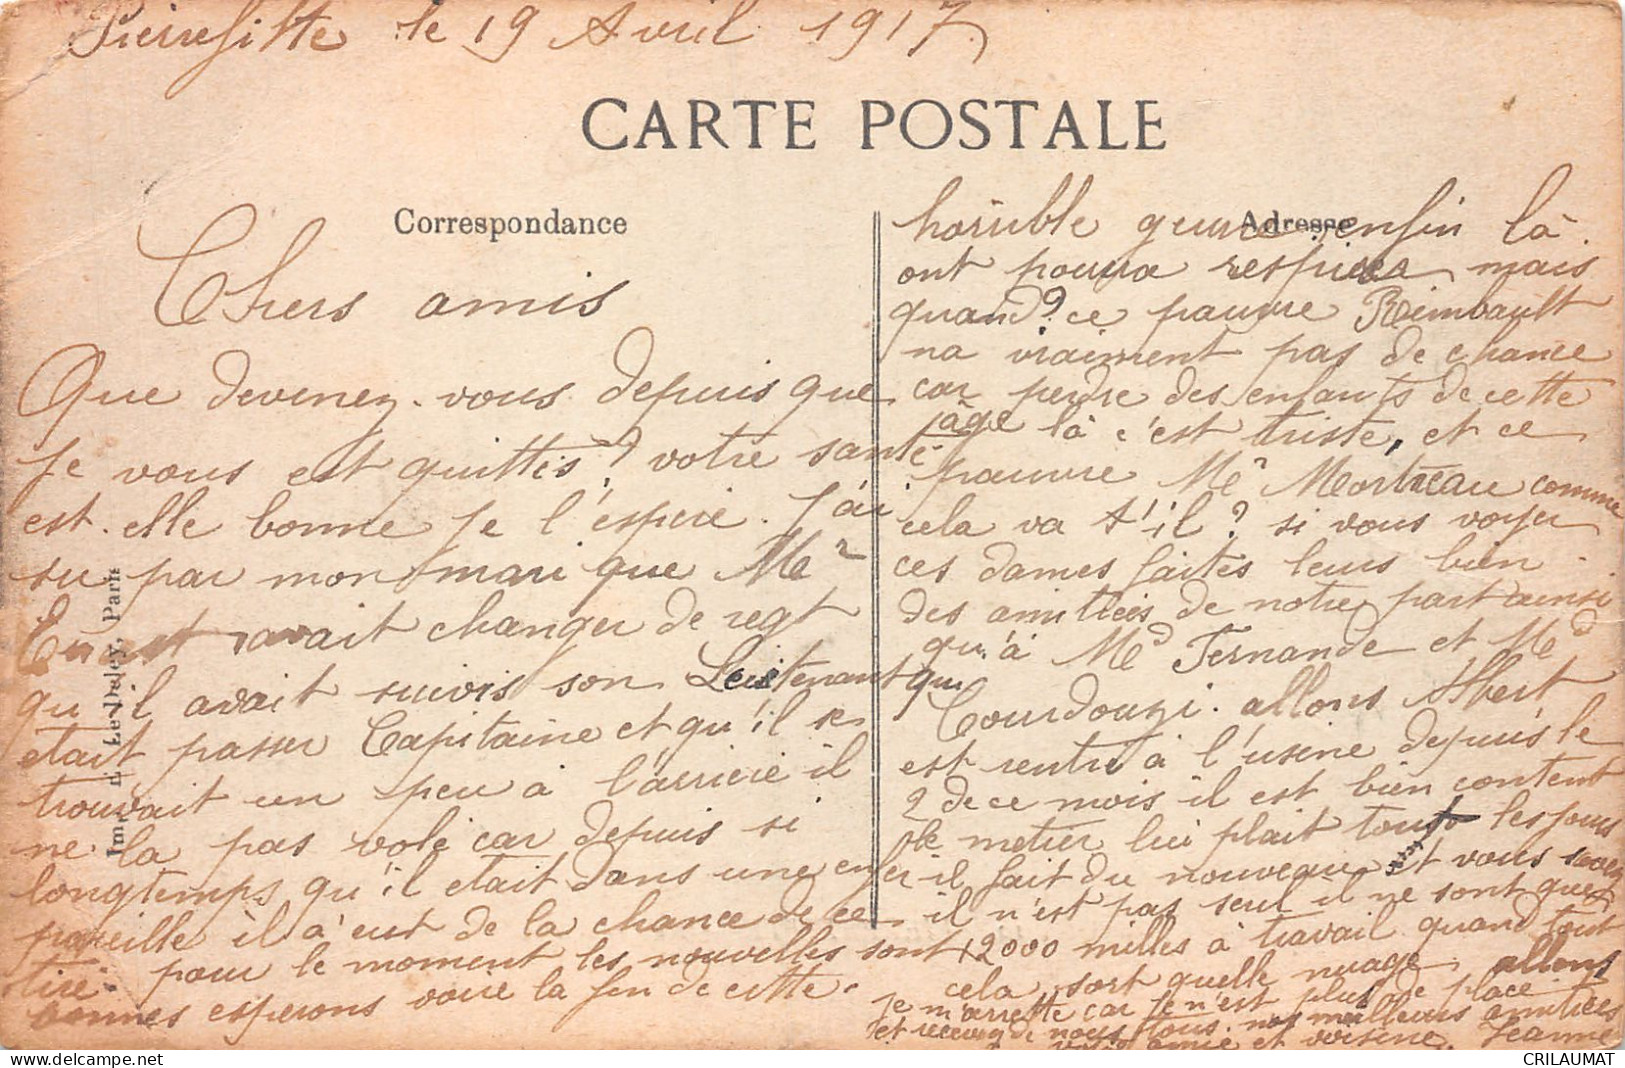 Pierrefitte le 19 Avril 1917
CARTE POSTALE
Correspondance
Chers amis
Que devenez-vous depuis que
je vous est quittés? votre santé
est-elle bonne je l'espère. J'ai
su par mon mari que Mr
avait changer de regt
qu'il avait suivis son Lieutenant qui
etait passer Capitaine et qu'il se
trouvait un peu à l'arrière il
ne la pas volé car depuis si
longtemps qu'il etait dans une enfer
pareille il à eut de la chance de ce
tiré. pour le moment les nouvelles sont
bonnes esperons voire la fin de cette
Imp. Le Deley, Paris
Adresse
horrible guerre enfin là
ont pourra respirer mais
quand? ce pauvre Reimbault
na vraiment pas de chance
car perdre des enfants de cette
âge là c'est triste, et ce
pauvre Mr Mortreau comme
cela va t'il? si vous voyer
ces dames faites leurs bien
des amitiées de notre part ainsi
qu'à Md Fernande et Md
Courdouzi. allons Albert
est rentré à l'usine depuis le
2 de ce mois il est bien content
le metier lui plait tout les jours
il fait du nouveau et vous savez
il n'est pas seul il ne sont que
12000 milles à travail quand tout
cela sort quelle nuage allons
je m'arrette car je n'est plus de place
et recevez de nous tous nos meilleurs amitiées
votre amie et voisine Jeanne
CRILAUMAT
www.delcampe.net